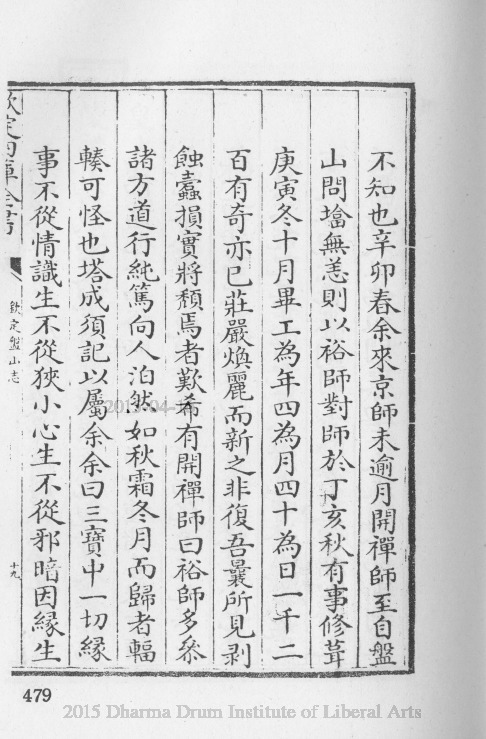 不知也辛卯春余來京師未逾月開禪師至自盤
山問塔無恙則以裕師對師於丁亥秋有事修葺
庚寅冬十月畢工為年四為月四十為日一千二
百有奇亦已莊嚴煥麗而新之非復吾曩所見剥
蝕蠹損實將頽焉者歎希有開禪師曰裕師多叅
諸方道行純篤向人泊然如秋霜冬月而歸者輻
輳可怪也塔成須記以屬余余曰三寶中一切縁
事不從情識生不從狹小心生不從邪暗因縁生
欽定四庫全書
欽定盤山志
十九
479
2015 Dharma Drum Institute of Liberal Arts